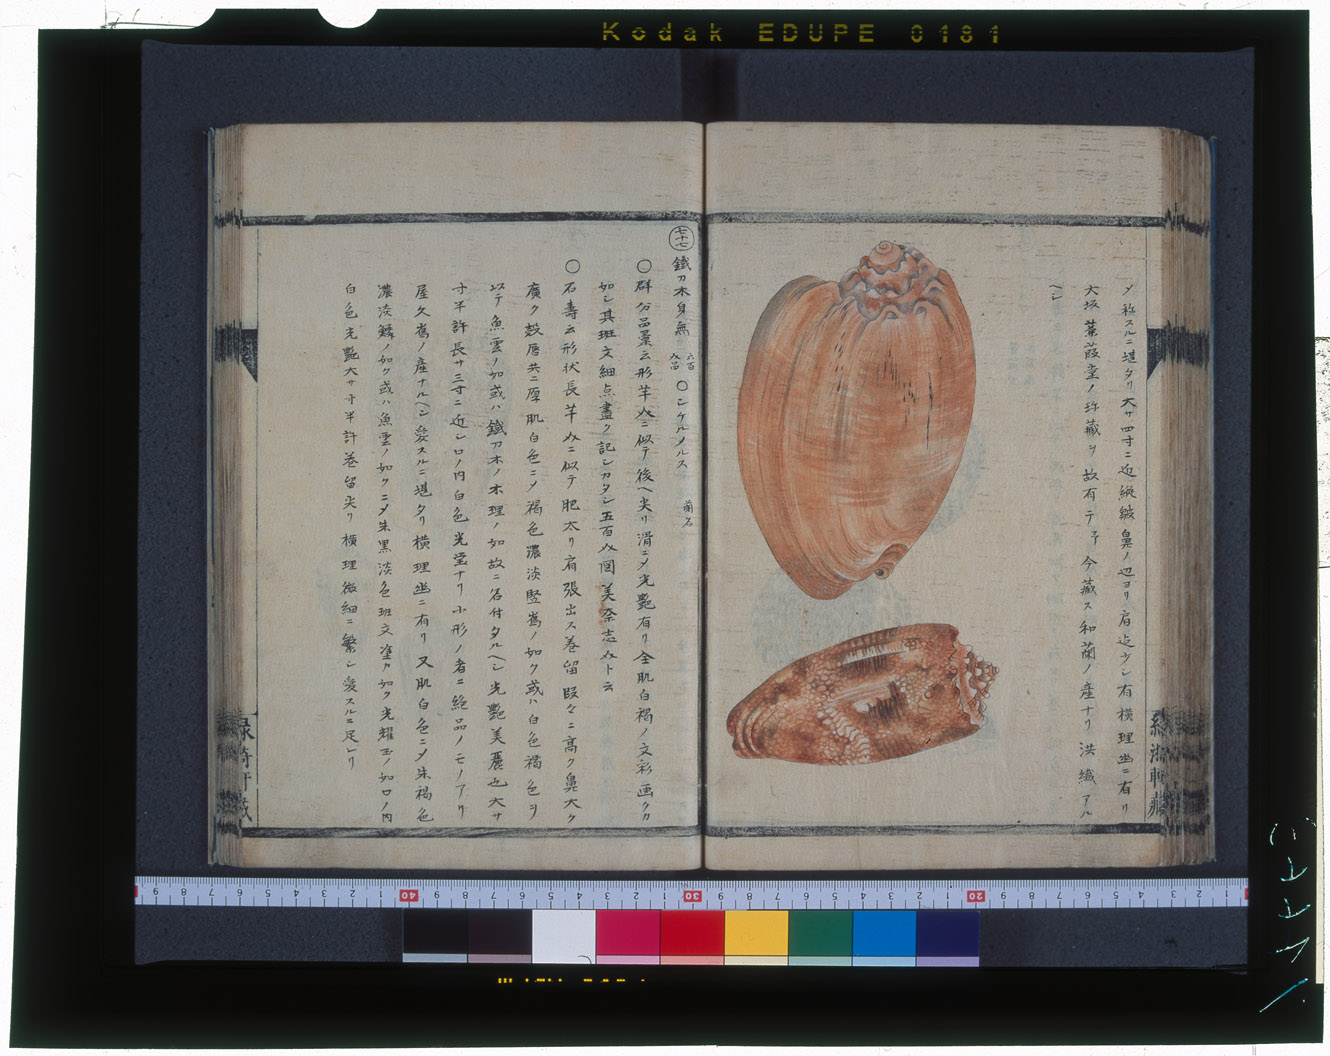 Kodak EDUPE 0181
〆称スルニ堪タリ大サ四寸ニ近縦皺鼻ノ辺ヨリ肩迄少シ有横理幽ニ有リ
大坂蒹葭堂ノ珎藏ヲ故有テ予今藏ス和蘭ノ産ナリ洪織アル
ヘシ
七十七 鐵刀木身無 六百 〇シケルメルス 蘭名
〇群分品彙云形芋ニ似テ後ヘ尖リ滑ニ〆光艶有リ全肌白褐ノ文彩画クカ
如シ其斑文細点盡ク記シカタシ五百圖美奈志ト云
〇石壽云形状長芋ニ似テ肥太リ肩張出ス巻留段々ニ高ク鼻大ク
廣ク殻唇共ニ厚肌白色ニ〆褐色濃淡竪嶌ノ如ク或ハ白色褐色ヲ
以テ魚雲ノ如或ハ鐵刀木ノ木理ノ如故ニ名付タルヘシ光艶美麗也大サ
寸半許長サ三寸ニ近シ口ノ内白色光瑩ナリ小形ノ者ニ絶品ノモノアリ
屋久嶌ノ産ナルヘシ愛スルニ堪タリ横理幽ニ有リ又肌白色ニ〆朱褐色
濃淡鱗ノ如ク或ハ魚雲ノ如クニ〆朱黒淡色斑文塗カ如ク光耀玉ノ如口ノ内
白色光艶大サ寸半許巻留尖リ横理微細ニ繁シ愛スルニ足レリ